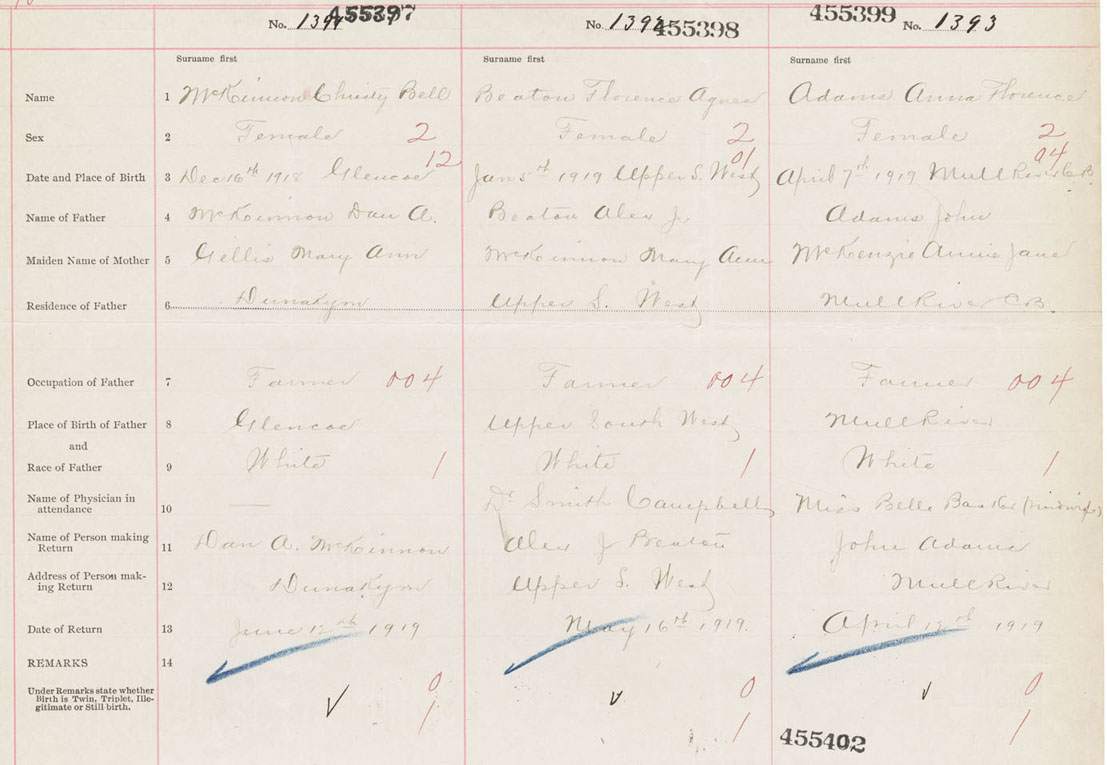 455397 455398 455399
No. No. No. 1393
Surname first Surname first Surname first
Name 1 McKinnon Christy Bell Beaton Florence Agnes Adams Anna Florence
Sex 2 Female 2 Female 2 Female 2
12 01 04
Date and Place of Birth 3 Dec 16th 1918 Glencoe Jan 5th 1919 Upper S. West April 7th 1919 Mull River C.B.
Name of Father 4 McKinnon Dan A. Beaton Alex J. Adams John
Maiden Name of Mother 5 Gillis Mary Ann McKinnon Mary Ann McKenzie Annie Jane
Residence of Father 6 Dunakyn Upper S. West Mull River C.B.
Occupation of Father 7 Farmer 004 Farmer 004 Farmer 004
Place of Birth of Father 8 Glencoe Upper South West Mull River
and
Race of Father 9 White 1 White 1 White 1
Name of Physician in
attendance 10 — Dr Smith Campbell Miss Belle (midwife)
Name of Person making
Return 11 Dan A. McKinnon Alex J Beaton John Adams
Address of Person mak-
ing Return 12 Dunakyn Upper S. West Mull River
Date of Return 13 June 1919 May 16th 1919 April 1919
REMARKS 14
Under Remarks state whether
Birth is Twin, Triplet, Ille-
gitimate or Still birth.
0 0 0
1 1 1
455402